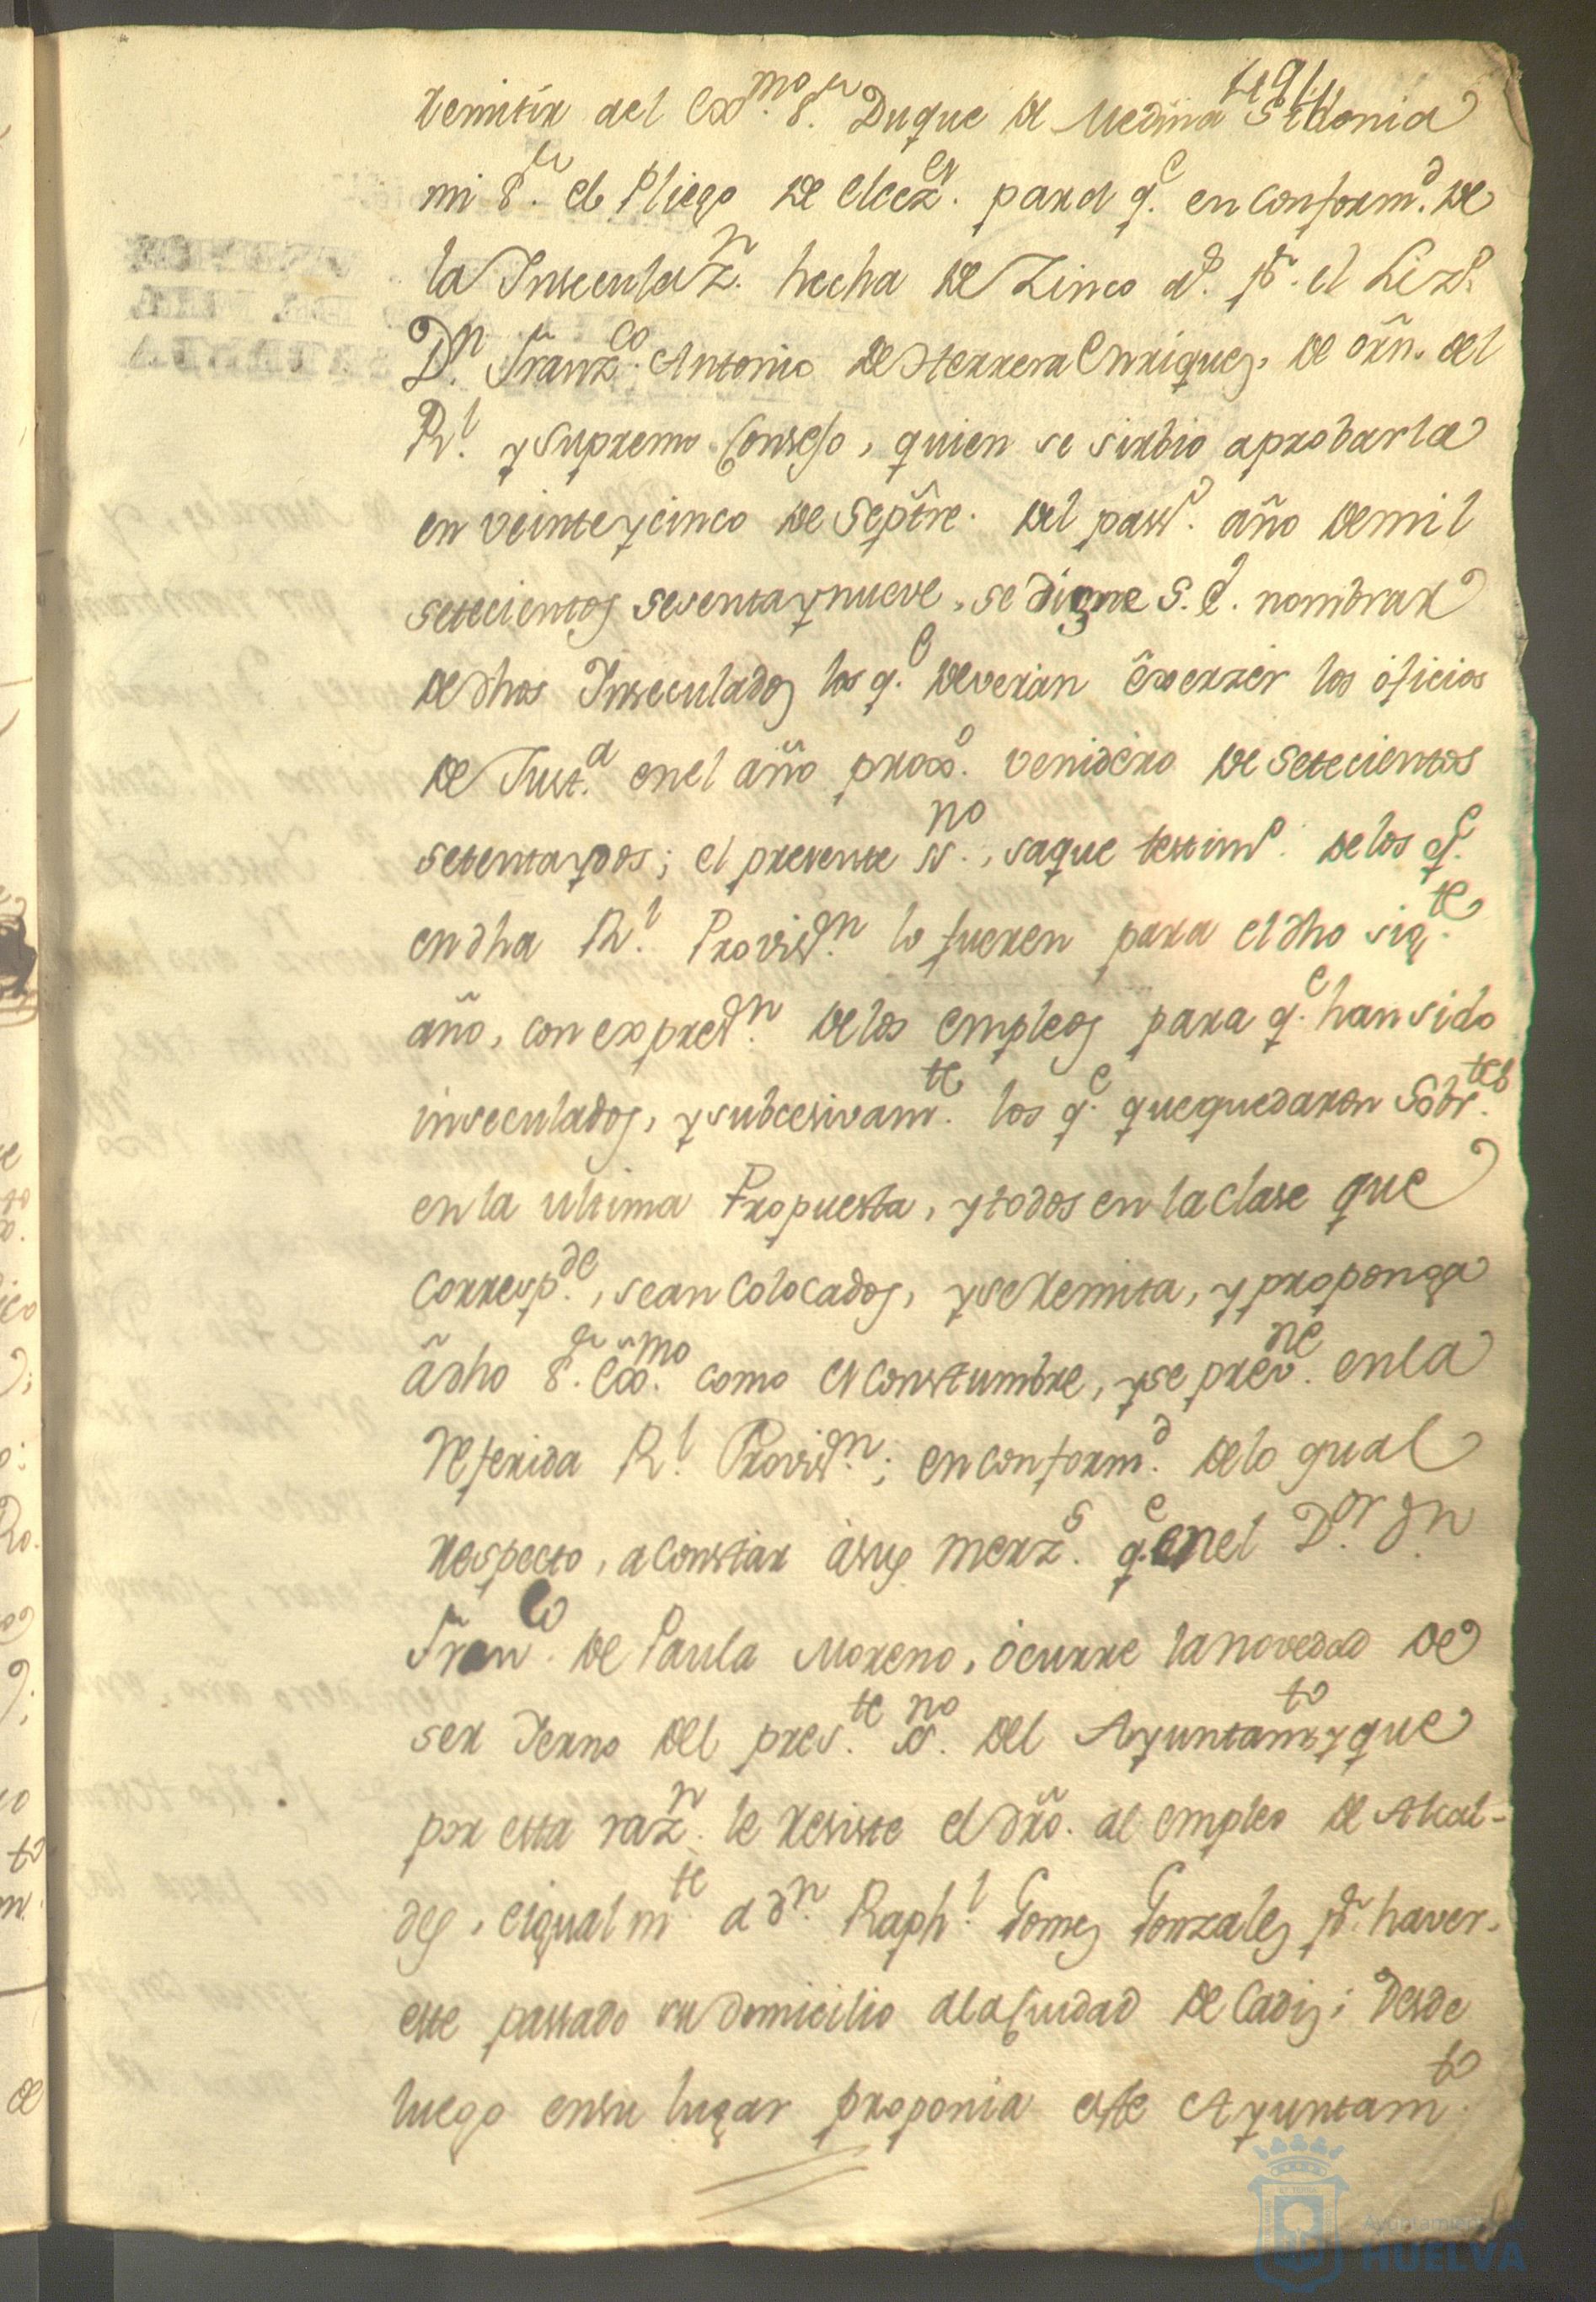 491
remitir del Exmo. Sr. Duque de Medina Sidonia
mi Sr. el Pliego de Eleczn. para q.e en conformd. de
la Inseculazn. hecha de Zinco as. pr. el Lizdo.
Dn. Franzco. Antonio de Herrera Enriquez, de orn. del
Rl. y Supremo Consejo, quien se sirbio aprobarla
en veinte y cinco de Septre. del passo. año de mil
setecientos sesenta y nueve, se digne S. E. nombrar
de dhos Inseculados los q.e deverán exerzér los oficios
de Justa. en el año proxo. venidéro de setecientos
setenta y dos; el presente ssno., saque testimo. de los q.e
en dha Rl. Provisn. lo fueren para el dho sigte.
año, con expresn. de los empleos para q.e han sido
inseculados, y subcesivamte. los q.e que quedaron Sobrtes.
en la ultima Propuesta, y todos en la clase que
correspde., sean colocados, y se remita, y proponga
á dho Sr. Exmo. como es constumbre, y se prevne. en la
referida Rl. Provisn.; en conformd. de lo qual
respecto, a constar á sus merzs. q.e en el Dor. Dn.
Franco. de Paula Moreno, ocurre la novedad de
ser Yerno del preste. ssno. del Ayuntamto. y que
por esta razn. le resiste el dro. al empleo de Alcal-
des, e igualmte. a dn. Raphl. Gomez Gonzales pr. haver-
este passado su domicilio a la Ciudad de Cadiz; desde
luego en su lugar proponia este Ayuntamto.
Ayuntamiento de
HUELVA